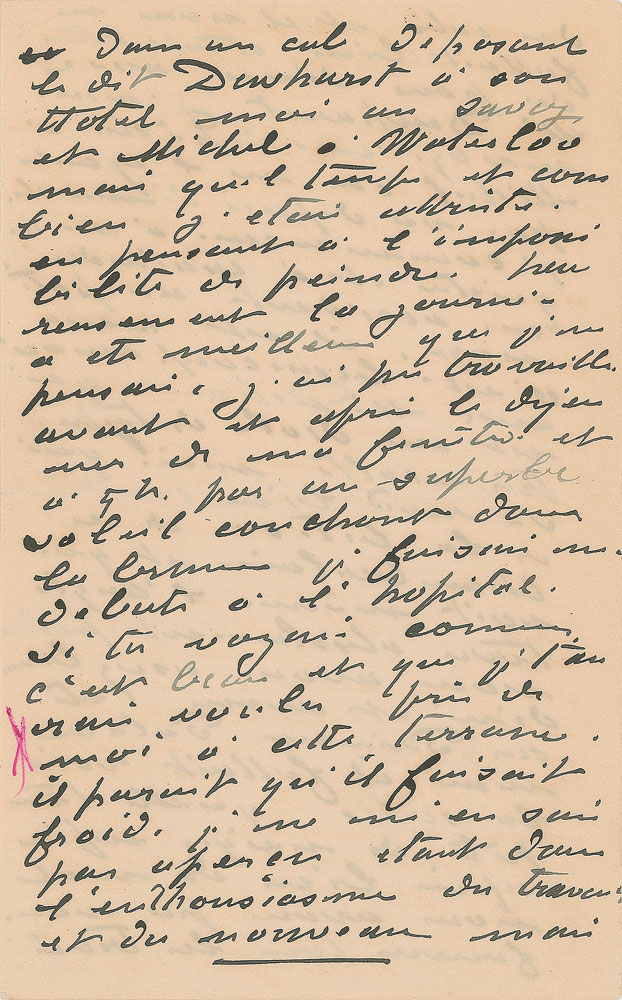 dans un cab déposant
le dit Dewhurst à son
Hotel moi au Savoy
et Michel à Waterloo
mais quel temps et com
bien j'étais attristé.
en pensant à l'imposi
bilité de peindre. heu
reusement la journé-
a été meilleure que je ne
pensais, j'ai pu travailler
avant et après le déjeu
ner de ma fenêtre et
à 5 h. par un superbe
soleil couchant dans
la brume j'y faisais mes
debuts à l'hopital.
si tu voyais comme
c'est beau et que j't'au
rais voulu près de
moi à cette terrasse.
il parait qu'il faisait
froid. je ne m'en suis
pas aperçu étant dans
l'enthousiasme du travail
et du nouveau mais